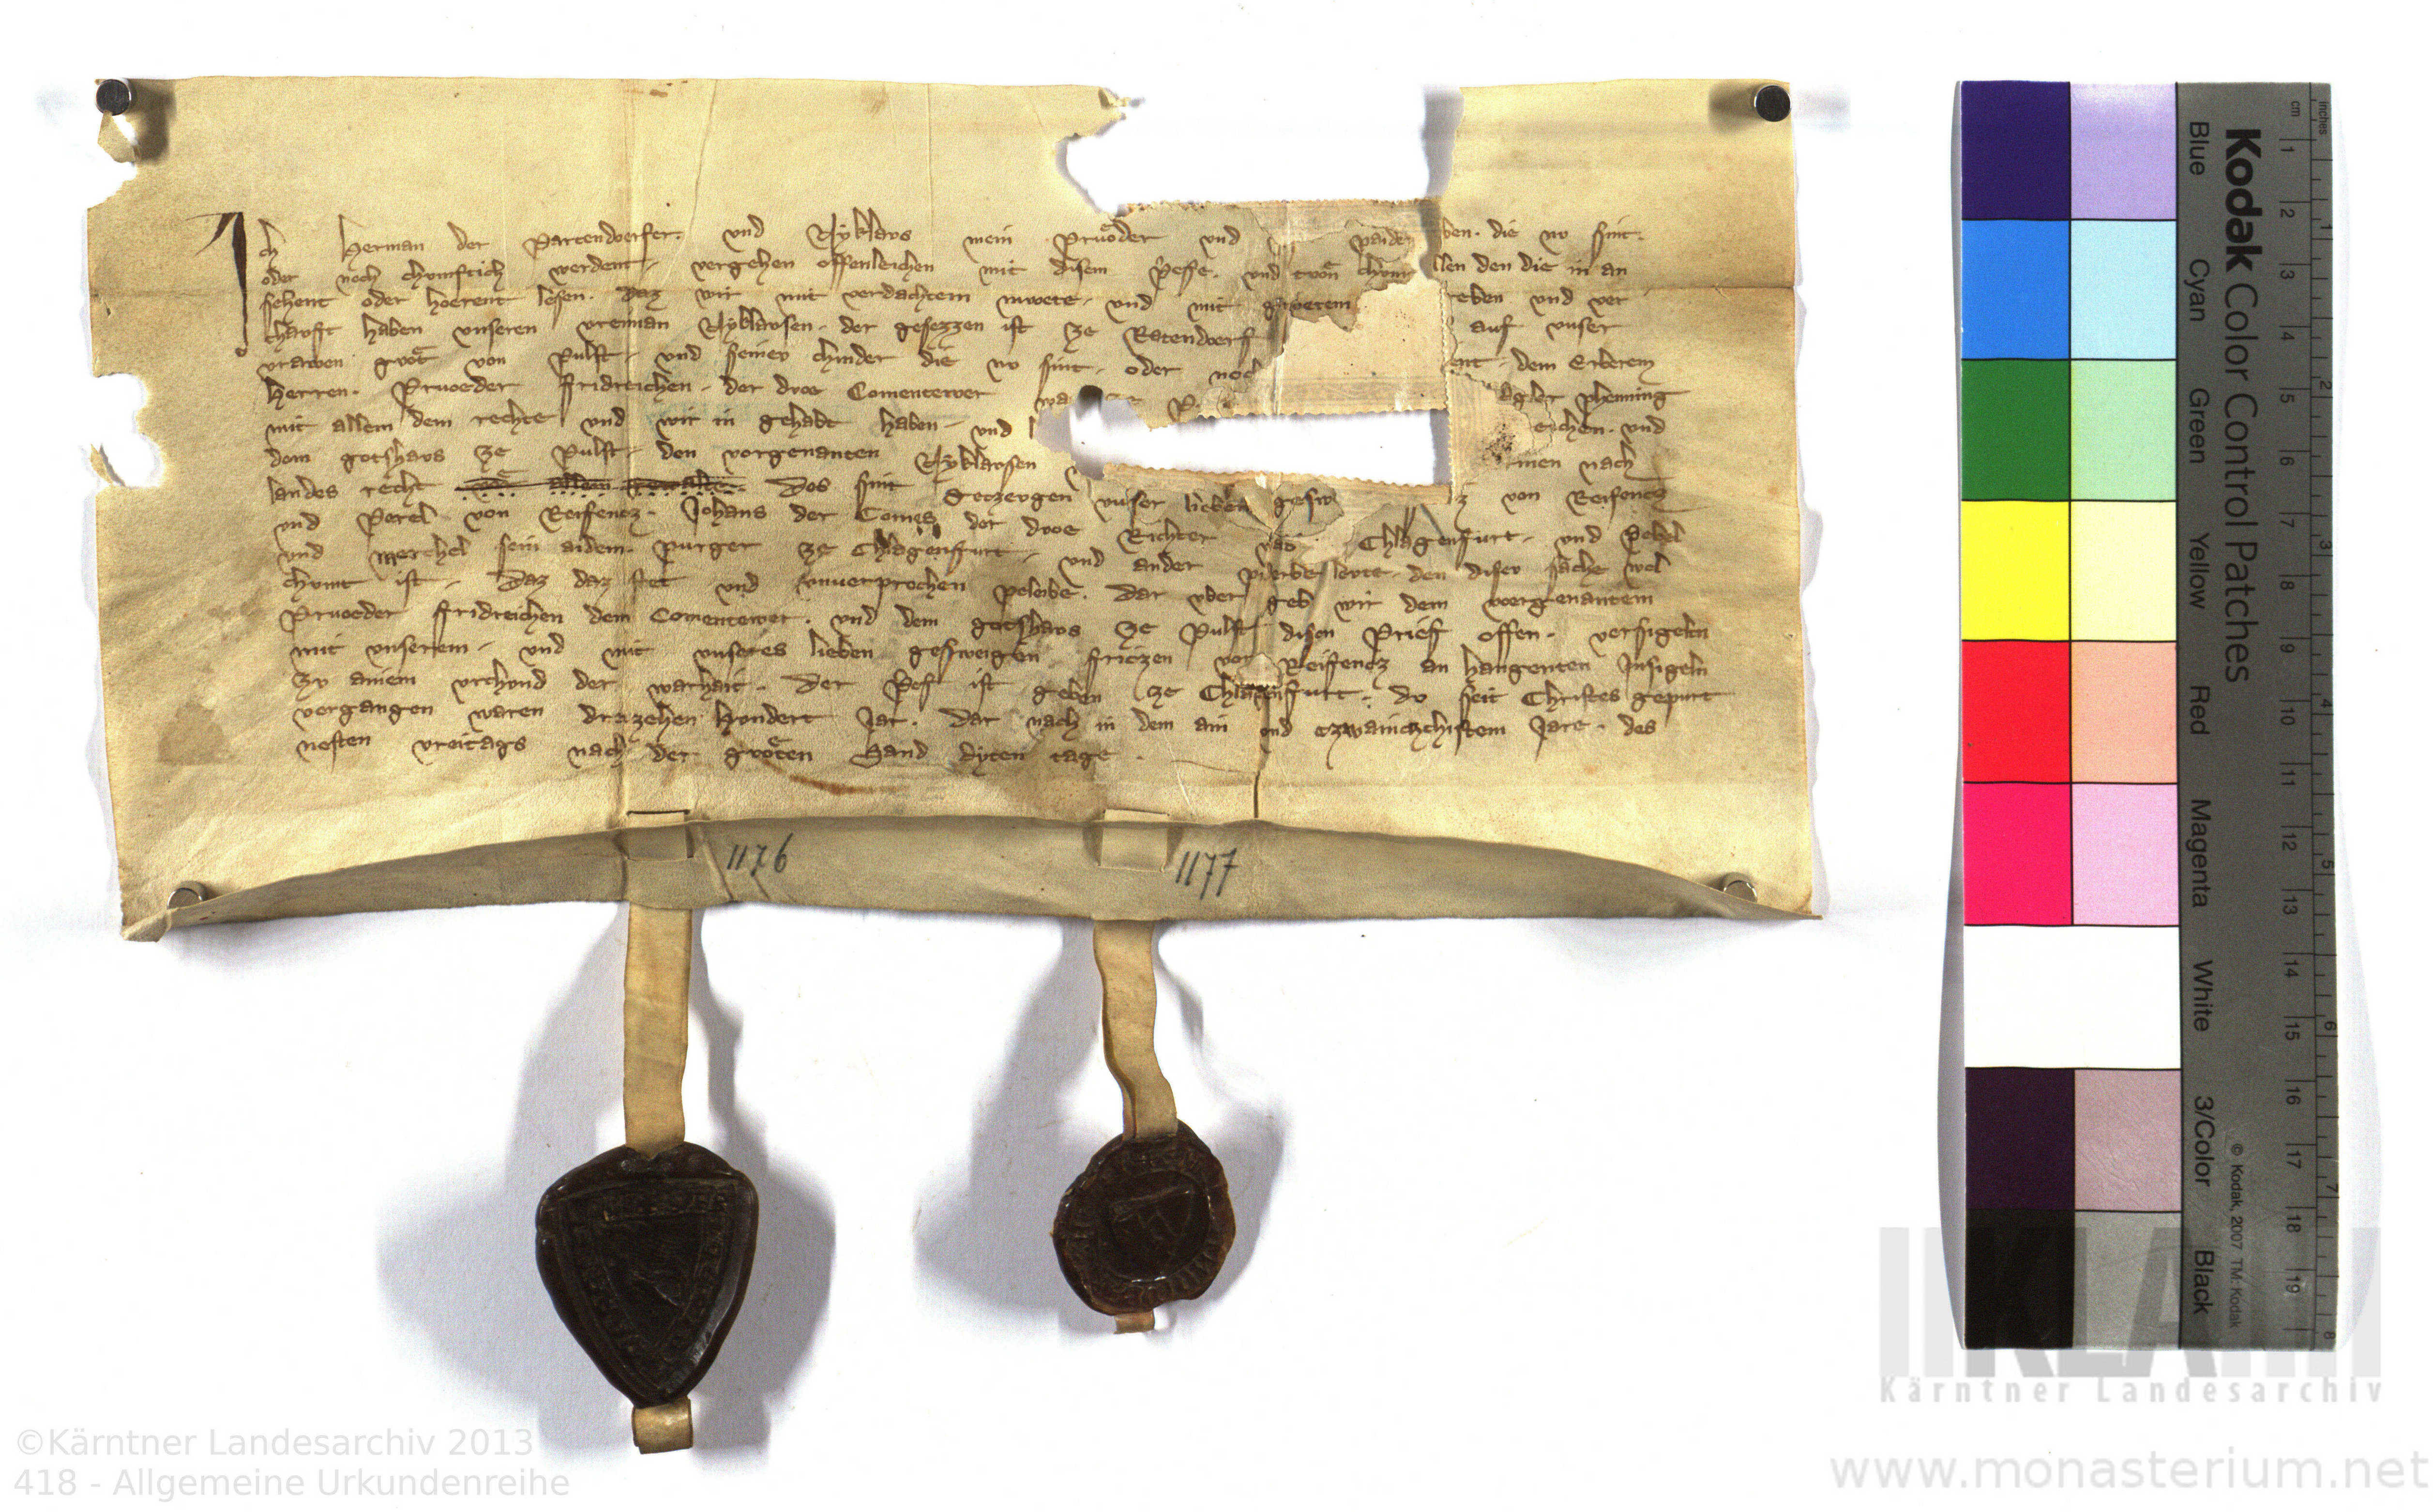 Ich Herman der Partendorfer. vnd Nyklavs mein Pruͦder vnd paider ben. die nv sint.
oder noch chvmftich werdent, vergehen offenleichen mit disem Prife. vnd tvͦn chvnt llen den die in an
sehent oder hoerent lesen. Daz wir mit verdachtem mvete, vnd mit gvͦtem reben vnd ver
chavfft haben vnseren vreiman Nyklavsen. der gesezzen ist ze Ratendorf auf vnser
vrawen gvͦt von Pulst, vnd seinev chinder die nv sint, oder noch ent, dem Erberem
Herren. Prveder ffridreichen, der dvoe Comentewer wa agler phenning
mit allem dem rechte vnd wir in gehabt haben, vnd eichen. vnd
dem gotshavs ze Pulst, den vorgenanten Nyklavsen men nach
landes recht allem gewalte. Des sint Geczevgen vnser lieber gesw z von Reifencz
vnd Perel von Reifencz. Johans der Comes der dvoe Richter was Chlagenfurt, vnd Pekel
vnd Merchel sein aidem. purger ze Chlagenffurt, vnd ander piderbe levte, den disev sache wol
chvnt ist, Daz daz stet vnd vnuerprochen peleibe. Dar vber geb wir dem vorgenantem
Prveder ffridreichen dem Comentewer. vnd dem gotshavs ze Pulst disen Prief offen. versigelten
mit vnserem, vnd mit vnseres lieben gesweigen friczen von Reifencz an hangenten Insigeln
zv ainem vrchvnd der warhait. Der Prief ist geben ze Chlagenfurt. do seit Christes gepurt
vergangen waren drevzehen Hvndert Jar. Dar nach in dem ain vnd czwainczchistem Jare. des
nesten vreitags nach der gvͦten Sand Gyten tage.
1176 1177
Kodak Color Control Patches
Blue Cyan Green Yellow Red Magenta White 3/Color Black
© Kodak, 2007 TM: Kodak
cm 1 2 3 4 5 6 7 8 9 10 11 12 13 14 15 16 17 18 19
inches 1 2 3 4 5 6 7 8
KLA
Kärntner Landesarchiv
©Kärntner Landesarchiv 2013
418 - Allgemeine Urkundenreihe
www.monasterium.net